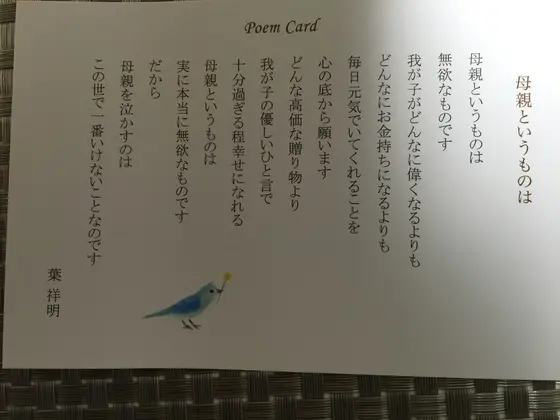 Poem Card
母親というものは
母親というものは
無欲なものです
我が子がどんなに偉くなるよりも
どんなにお金持ちになるよりも
毎日元気でいてくれることを
心の底から願います
どんな高価な贈り物より
我が子の優しいひと言で
十分過ぎる程幸せになれる
母親というものは
実に本当に無欲なものです
だから
母親を泣かすのは
この世で一番いけないことなのです
葉 祥明